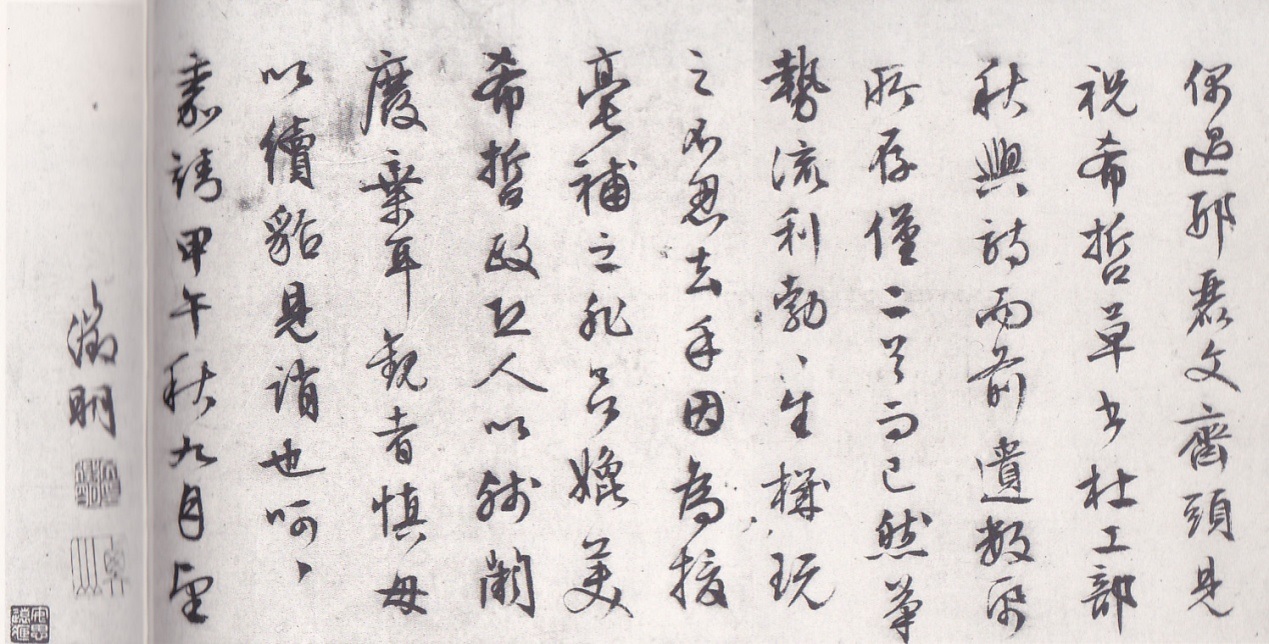 偶過邢麗文齋頭見
祝希哲草書杜工部
秋興詩而前遺數帋
所存僅二首而已然筆
勢流利勃、生機玩
之不忍去手因為援
毫補之非媲美
希哲政恐人以殘闕
廢棄耳觀者慎毋
以續貂見誚也呵、
嘉靖甲午秋九月望
徵明